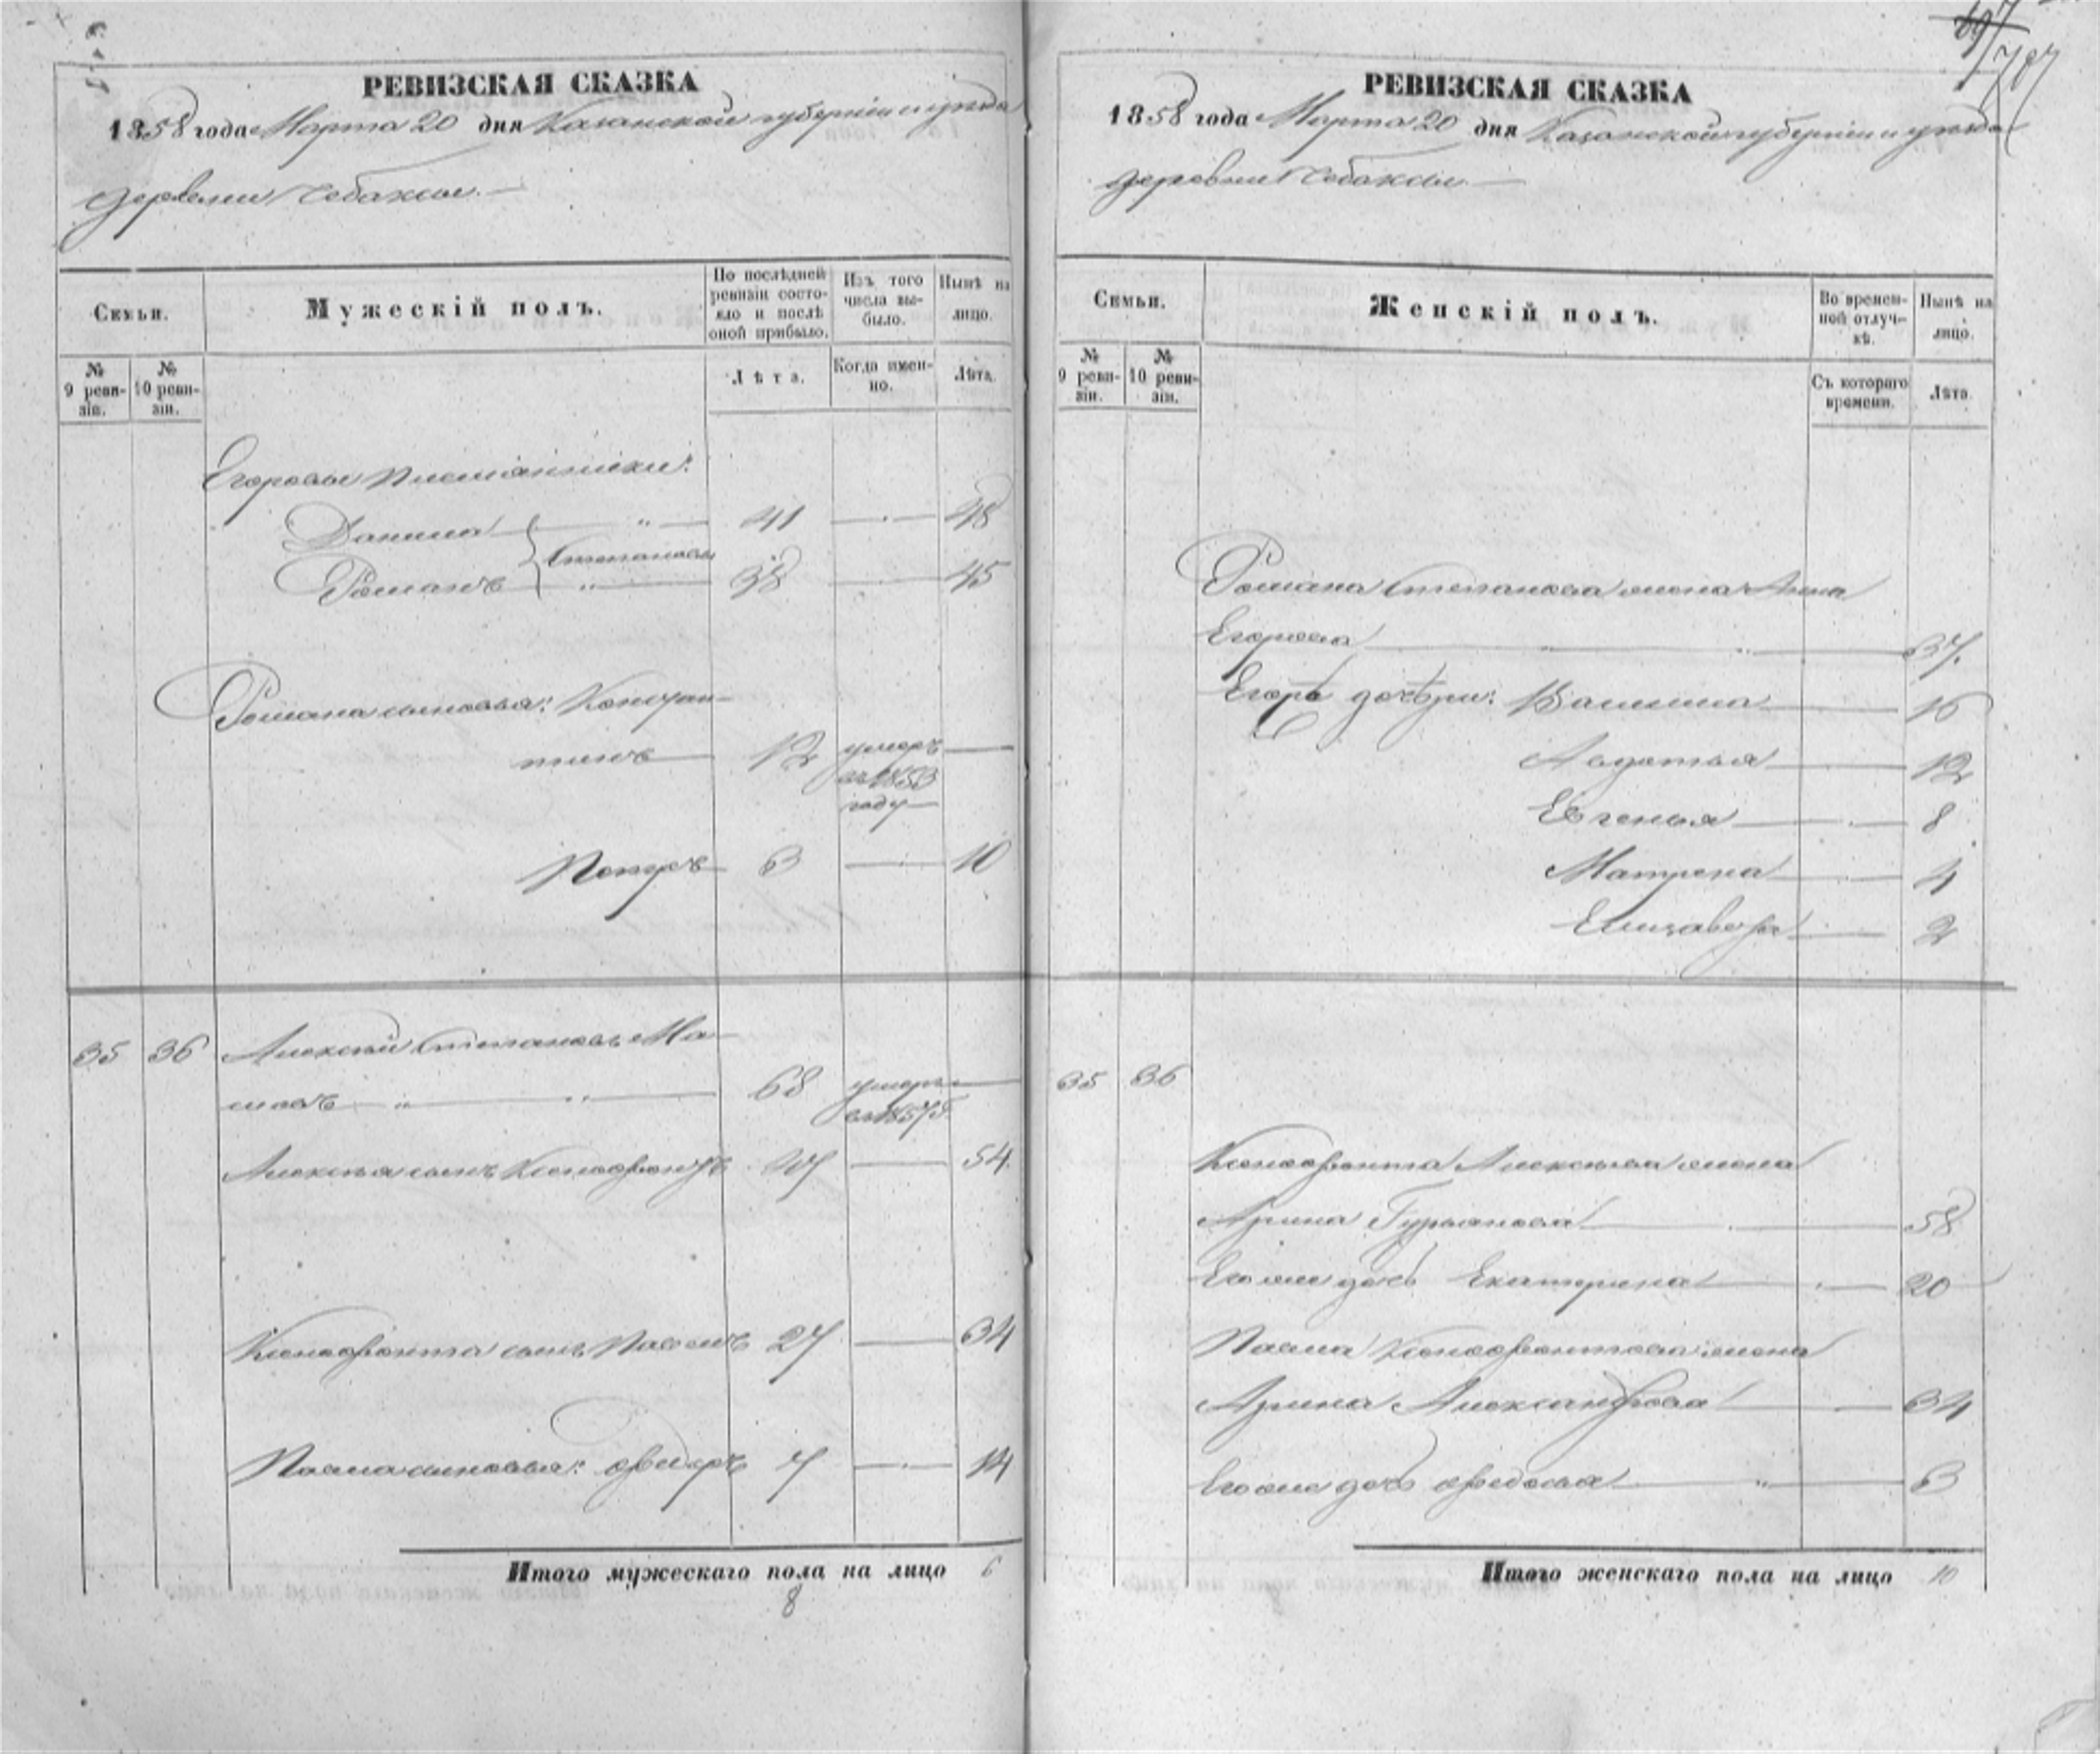 РЕВИЗСКАЯ СКАЗКА
1858 года Марта 20 дня Казанской губерніи и уѣзда
деревни Чебаксы.
Семьи.
Мужескій полъ.
По послѣдней ревизіи состояло и послѣ оной прибыло.
Изъ того числа выбыло.
Нынѣ на лицо.
№ 9 ревизіи.
№ 10 ревизіи.
Лѣта.
Когда именно.
Лѣта.
Егоровы племянники:
Данила 41 48
Степановы
Романъ 38 45
Романа сыновья: Констан-
тинъ 12 умеръ
въ 1853
году
Петръ 3 10
35 36 Алексѣй Степановъ Ма-
68 умеръ
въ 1857 г.
Алексѣя сынъ Ксенофонтъ 47 54.
Ксенофонта сынъ Павелъ 27 34
Павла сыновья: Ѳедоръ 7 14
Итого мужескаго пола на лицо 6
8
787
РЕВИЗСКАЯ СКАЗКА
1858 года Марта 20 дня Казанской губерніи и уѣзда
деревни Чебаксы.
Семьи.
Женскій полъ.
Во временной отлучкѣ.
Нынѣ на лицо.
№ 9 ревизіи.
№ 10 ревизіи.
Съ котораго времени.
Лѣта.
Романа Степанова жена Анна
Егорова 37.
дочери: 16
Авдотья 12
Евгенья 8
Матрена 4
Елизавета 2
35 36
Ксенофонта Алексѣева жена
Арина Гурьянова 58
Его же дочь Екатерина 20
Павла Ксенофонтова жена
Арина Александрова 34
Его же дочь Ѳедосья 3
Итого женскаго пола на лицо 10